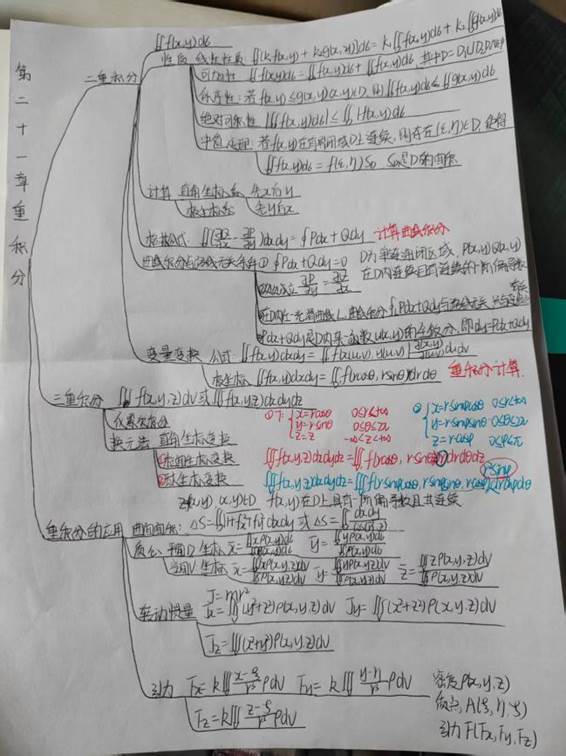 第二十一章重积分
二重积分
∬f(x,y)dσ
性质 线性性质 ∬(k₁f(x,y)+k₂g(x,y))dσ=k₁∬f(x,y)dσ+k₂∬g(x,y)dσ
可加性 ∬f(x,y)dσ=∬f(x,y)dσ+∬f(x,y)dσ 其中D=D₁∪D₂
保序性:若f(x,y)≤g(x,y),(x,y)∈D,则∬f(x,y)dσ≤∬g(x,y)dσ
绝对可积性 |∬f(x,y)dσ|≤∬|f(x,y)|dσ
中值定理:若f(x,y)在有界闭域D上连续,则存在(ξ,η)∈D,使得
∬f(x,y)dσ=f(ξ,η)S_D S_D是D的面积
计算 直角坐标系 先x后y
极坐标系 先r后θ
格林公式 ∬(∂Q/∂x-∂P/∂y)dxdy=∮Pdx+Qdy 计算曲线积分
曲线积分与路线无关条件 ① ∮Pdx+Qdy=0 D为单连通闭区域,P(x,y)Q(x,y)
在D内连续且有连续的一阶偏导数
∂P/∂y=∂Q/∂x
Pdx+Qdy是D内某一函数u(x,y)的全微分,即du=Pdx+Qdy
变量变换 公式 ∬f(x,y)dxdy=∬f(x(u,v),y(u,v))|∂(x,y)/∂(u,v)|dudv
极坐标 ∬f(x,y)dxdy=∬f(rcosθ,rsinθ)rdrdθ 重积分计算
三重积分 ∭f(x,y,z)dv或∭f(x,y,z)dxdydz
化累次积分
换元法 直角坐标变换
① 柱面坐标变换
② 球坐标变换
① T: x=rcosθ 0≤r<+∞
y=rsinθ 0≤θ≤2π
z=z -∞<z<+∞
② x=rsinφcosθ 0≤r<+∞
y=rsinφsinθ 0≤θ≤2π
z=rcosφ 0≤φ≤π
∭f(x,y,z)dxdydz=∭f(rcosθ,rsinθ,z)rdrdθdz
∭f(x,y,z)dxdydz=∭f(rsinφcosθ,rsinφsinθ,rcosφ)r²sinφdrdφdθ
z=f(x,y) (x,y)∈D f(x,y)在D上具有一阶偏导数且其连续
重积分的应用 曲面面积:ΔS=∬√(1+fx²+fy²)dxdy或ΔS=∬dxdy/|cos(n,z)|
质心 平面D坐标 x̄=∬xρ(x,y)dσ/∬ρ(x,y)dσ ȳ=∬yρ(x,y)dσ/∬ρ(x,y)dσ
空间V坐标 x̄=∭xρ(x,y,z)dv/∭ρ(x,y,z)dv ȳ=∭yρ(x,y,z)dv/∭ρ(x,y,z)dv z̄=∭zρ(x,y,z)dv/∭ρ(x,y,z)dv
转动惯量
J=mr²
Jx=∭(y²+z²)ρ(x,y,z)dv Jy=∭(x²+z²)ρ(x,y,z)dv
Jz=∭(x²+y²)ρ(x,y,z)dv
引力 Fx=k∭(x-ξ)/r³ρdv Fy=k∭(y-η)/r³ρdv
Fz=k∭(z-ζ)/r³ρdv
密度ρ(x,y,z)
质点A(ξ,η,ζ)
引力F(Fx,Fy,Fz)